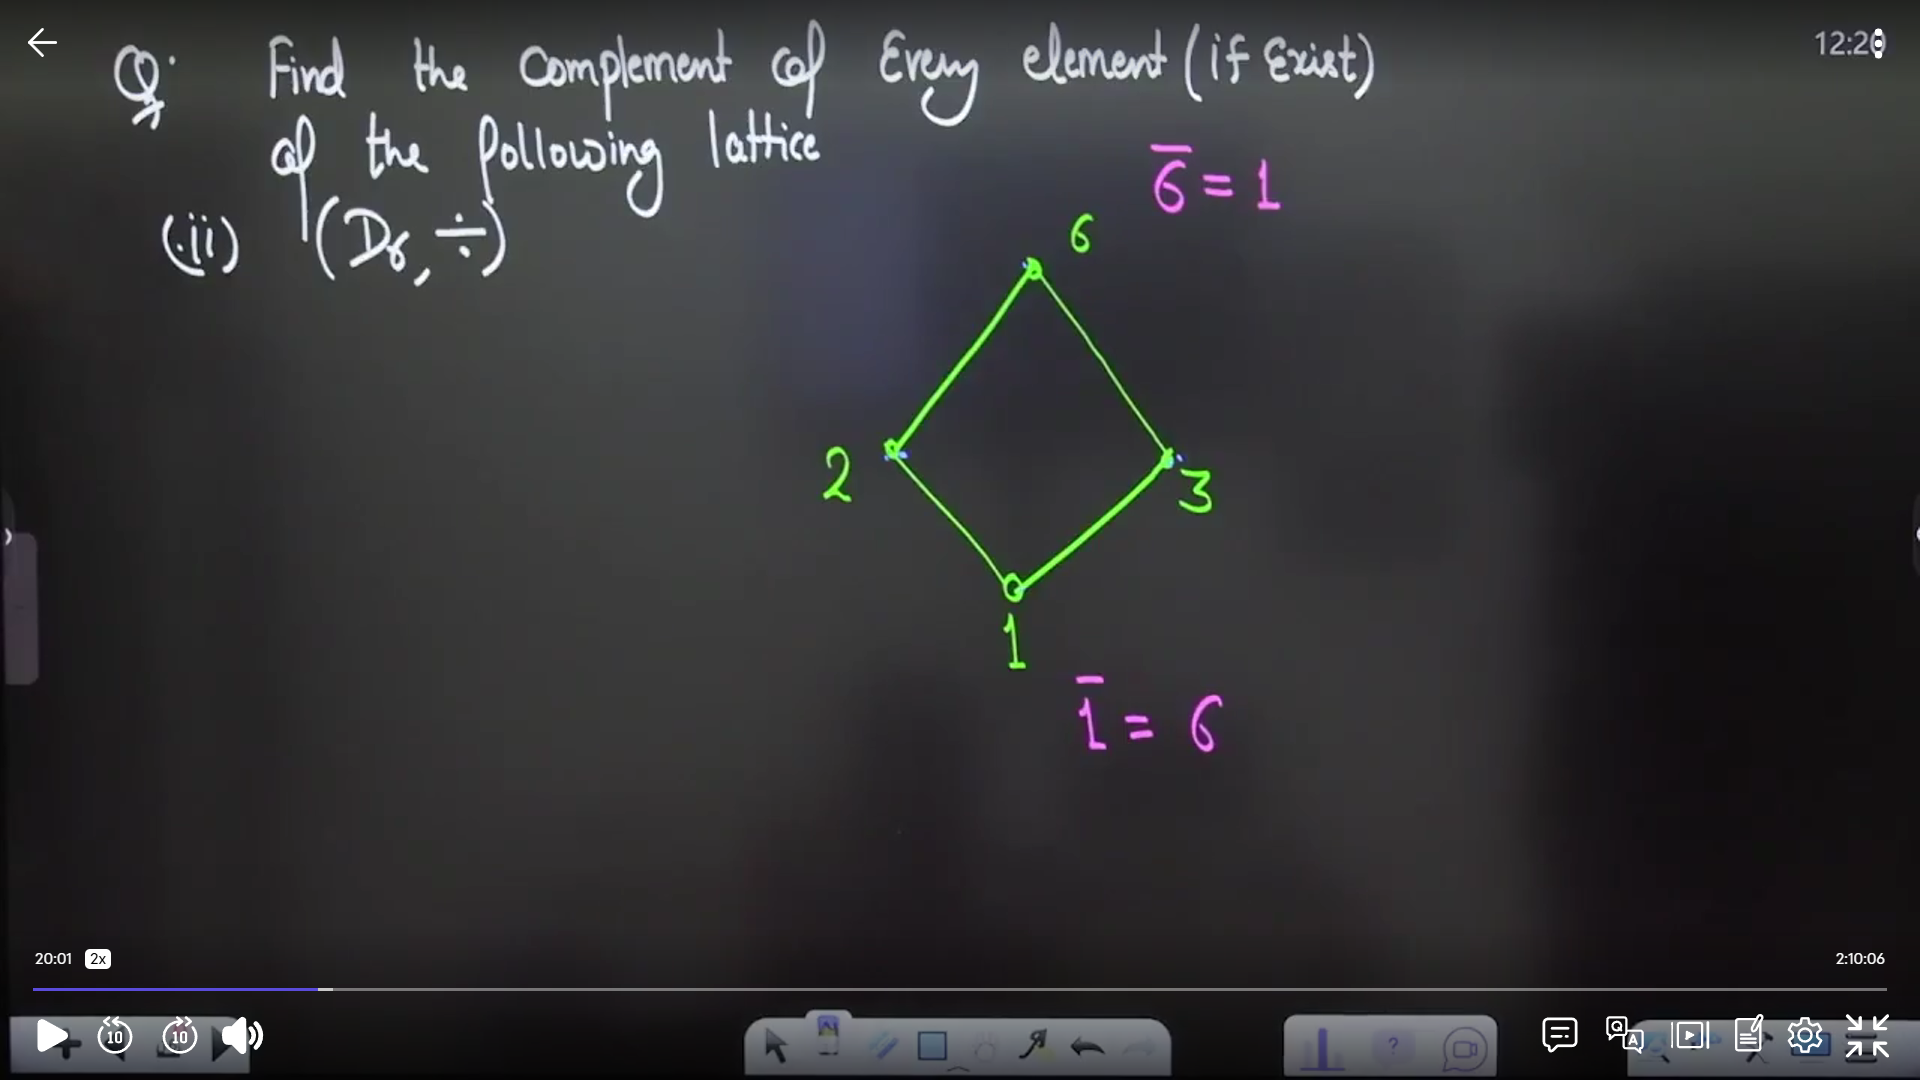 12:20
Q. Find the Complement of Every element (if Exist)
of the following lattice
(ii) (D6, ÷)
6̅ = 1
6
2
3
1
1̅ = 6
20:01 2x
2:10:06
10
10